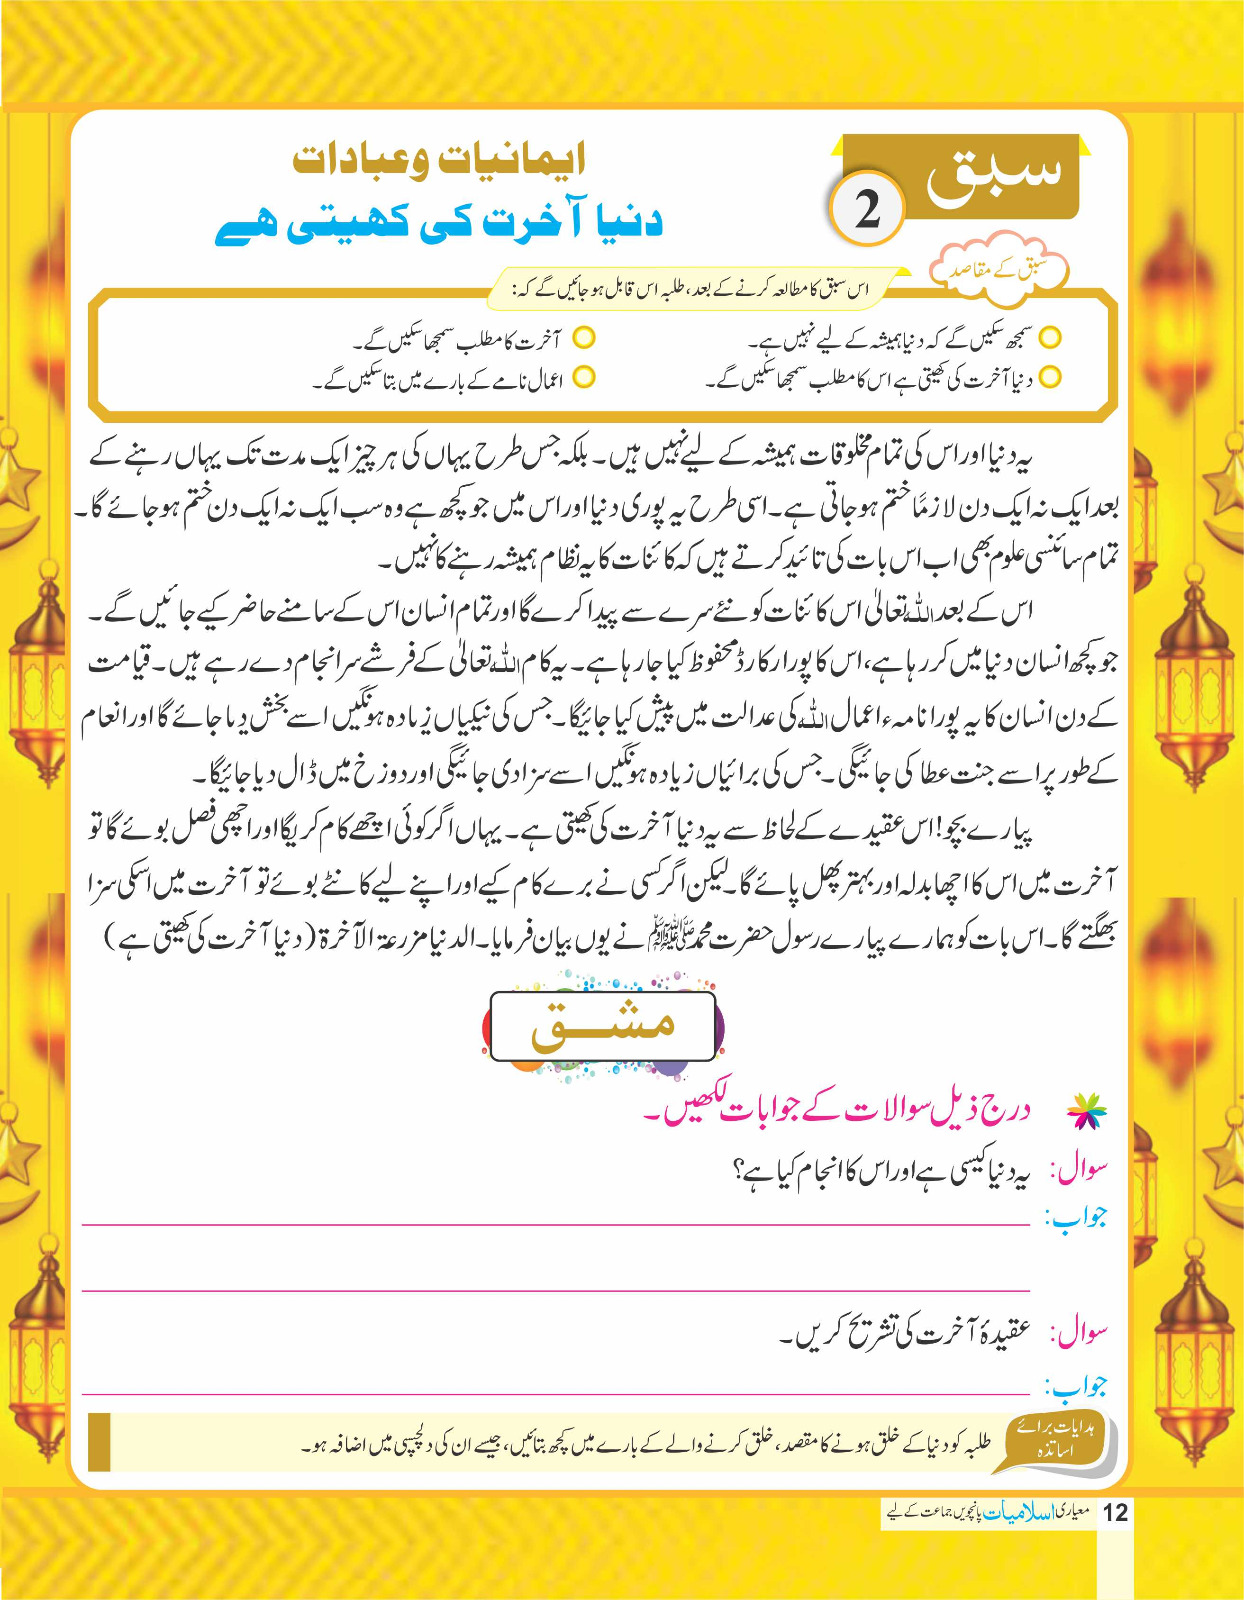 سبق
2
ایمانیات وعبادات
دنیا آخرت کی کھیتی ھے
سبق کے مقاصد
اس سبق کا مطالعہ کرنے کے بعد، طلبہ اس قابل ہو جائیں گے کہ:
سمجھ سکیں گے کہ دنیا ہمیشہ کے لیے نہیں ہے۔
آخرت کا مطلب سمجھا سکیں گے۔
دنیا آخرت کی کھیتی ہے اس کا مطلب سمجھا سکیں گے۔
اعمال نامے کے بارے میں بتا سکیں گے۔
یہ دنیا اور اس کی تمام مخلوقات ہمیشہ کے لیے نہیں ہیں۔ بلکہ جس طرح یہاں کی ہر چیز ایک مدت تک یہاں رہنے کے
بعد ایک نہ ایک دن لازمًا ختم ہو جاتی ہے۔ اسی طرح یہ پوری دنیا اور اس میں جو کچھ ہے وہ سب ایک نہ ایک دن ختم ہو جائے گا۔
تمام سائنسی علوم بھی اب اس بات کی تائید کرتے ہیں کہ کائنات کا یہ نظام ہمیشہ رہنے کا نہیں۔
اس کے بعد اللہ تعالیٰ اس کائنات کو نئے سرے سے پیدا کرے گا اور تمام انسان اس کے سامنے حاضر کیے جائیں گے۔
جو کچھ انسان دنیا میں کر رہا ہے، اس کا پورا رکارڈ محفوظ کیا جا رہا ہے۔ یہ کام اللہ تعالیٰ کے فرشے سرانجام دے رہے ہیں۔ قیامت
کے دن انسان کا یہ پورا نامہء اعمال اللہ کی عدالت میں پیش کیا جائیگا۔ جس کی نیکیاں زیادہ ہونگیں اسے بخش دیا جائے گا اور انعام
کے طور پر اسے جنت عطا کی جائیگی۔ جس کی برائیاں زیادہ ہونگیں اسے سزا دی جائیگی اور دوزخ میں ڈال دیا جائیگا۔
پیارے بچو! اس عقیدے کے لحاظ سے یہ دنیا آخرت کی کھیتی ہے۔ یہاں اگر کوئی اچھے کام کریگا اور اچھی فصل بوئے گا تو
آخرت میں اس کا اچھا بدلہ اور بہتر پھل پائے گا۔ لیکن اگر کسی نے برے کام کیے اور اپنے لیے کانٹے بوئے تو آخرت میں اسکی سزا
بھگتے گا۔ اس بات کو ہمارے پیارے رسول حضرت محمد ﷺ نے یوں بیان فرمایا۔ الدنیا مزرعۃ الآخرۃ (دنیا آخرت کی کھیتی ہے)
مشق
درج ذیل سوالات کے جوابات لکھیں۔
سوال: یہ دنیا کیسی ہے اور اس کا انجام کیا ہے؟
جواب:
سوال: عقیدۂ آخرت کی تشریح کریں۔
جواب:
ہدایات برائے
اساتذہ
طلبہ کو دنیا کے خلق ہونے کا مقصد، خلق کرنے والے کے بارے میں کچھ بتائیں، جیسے ان کی دلچسپی میں اضافہ ہو۔
12 معیاری اسلامیات پانچویں جماعت کے لیے